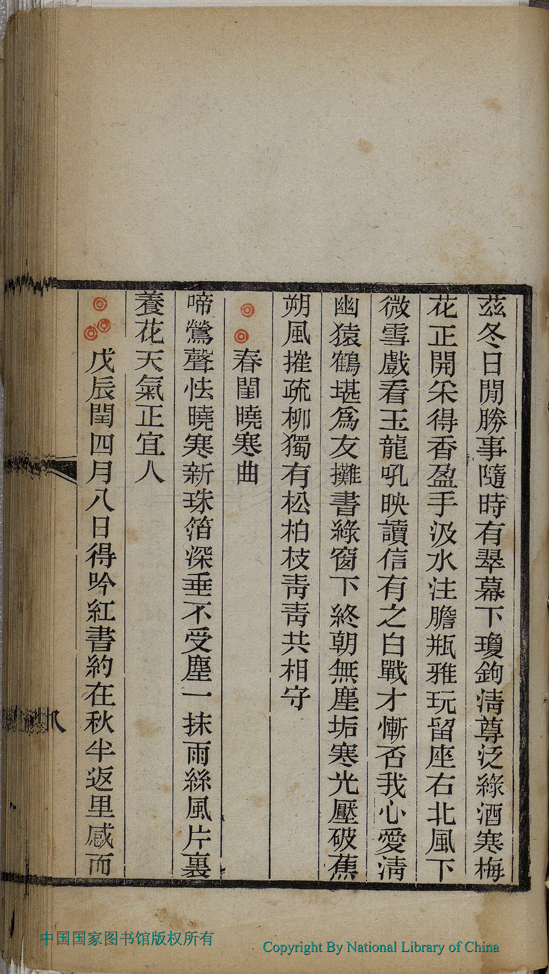 茲冬日閒勝事隨時有翠幕下瓊鉤淸尊泛綠酒寒梅
花正開采得香盈手汲水注膽瓶雅玩留座右北風下
微雪戲看玉龍吼映讀信有之白戰才慚否我心愛淸
幽猿鶴堪爲友攤書綠窗下終朝無塵垢寒光壓破蕉
朔風摧疏柳獨有松柏枝靑靑共相守
春閨曉寒曲
啼鶯聲怯曉寒新珠箔深垂不受塵一抹雨絲風片裏
養花天氣正宜人
戊辰閏四月八日得吟紅書約在秋半返里感而
八
中国国家图书馆版权所有
Copyright By National Library of China